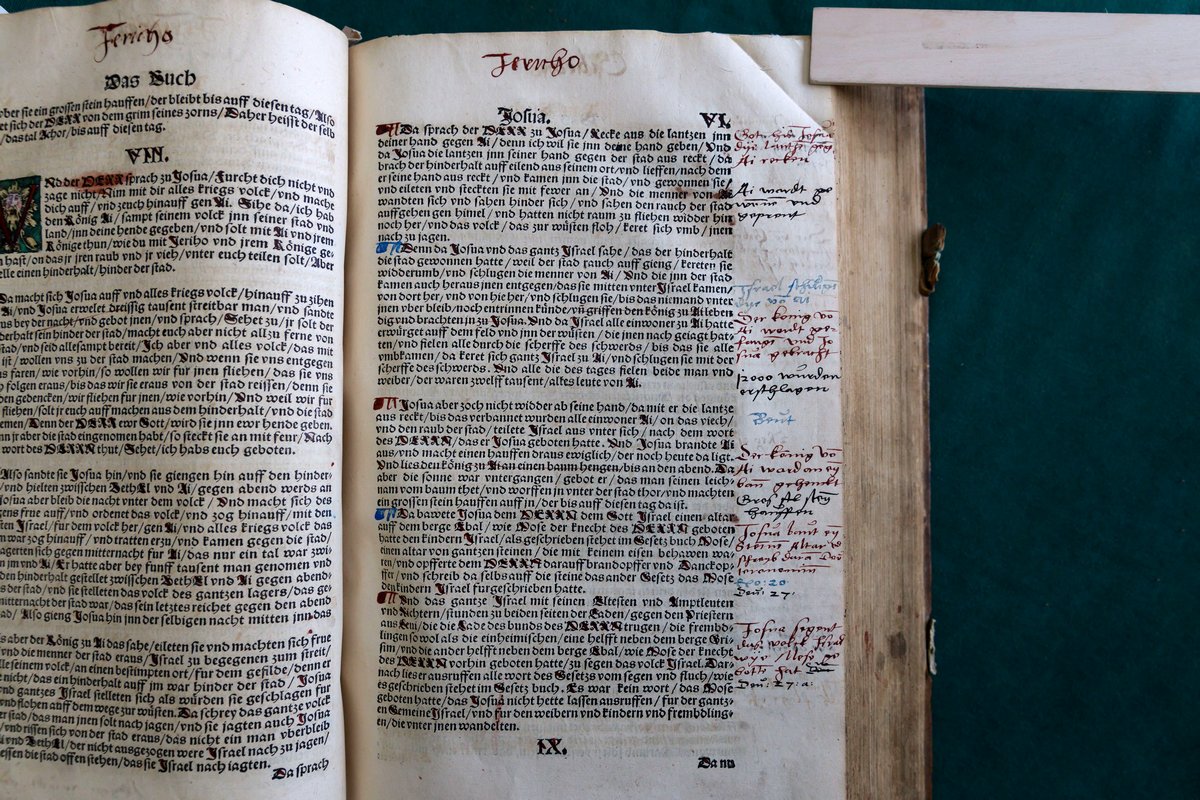 Jericho
Das Buch
ober sie ein grossen stein hauffen/der bleibt bis auff diesen tag/Also
et sich der HERR von dem grim seines zorns/Daher heisst der selb
/das tal Achor/bis auff diesen tag.
VIII.
Nd der HERR sprach zu Josua/Furcht dich nicht vnd
zage nicht/Nim mit dir alles kriegs volck/vnd mache
dich auff/vnd zeuch hinauff gen Ai. Sihe da/ich hab
den König Ai/sampt seinem volck jnn seiner stad vnd
land/jnn deine hende gegeben/vnd solt mit Ai vnd jrem
Könige thun/wie du mit Jeriho vnd jrem Könige ge-
hast/on das jr jren raub vnd jr vieh/vnter euch teilen solt/Aber
elle einen hinderhalt/hinder der stad.
Da macht sich Josua auff vnd alles kriegs volck/hinauff zu zihen
Ai/vnd Josua erwelet dreissig tausent streitbar man/vnd sandte
us bey der nacht/vnd gebot jnen/vnd sprach/Sehet zu/jr solt der
derhalt sein hinder der stad/macht euch aber nicht allzu ferne von
stad/vnd seid allesampt bereit/Ich aber vnd alles volck/das mit
ist/wollen vns zu der stad machen/Vnd wenn sie vns entgegen
us faren/wie vorhin/so wollen wir fur jnen fliehen/das sie vns
folgen eraus/bis das wir sie eraus von der stad reissen/denn sie
den gedencken/wir fliehen fur jnen/wie vorhin/Vnd weil wir fur
fliehen/solt jr euch auff machen aus dem hinderhalt/vnd die stad
emen/Denn der HERR ewr Gott/wird sie jnn ewr hende geben.
nn jr aber die stad eingenomen habt/so steckt sie an mit feur/Nach
wort des HERRN thut/Sehet/ich habs euch geboten.
Also sandte sie Josua hin/vnd sie giengen hin auff den hinder-
/vnd hielten zwisschen BethEl vnd Ai/gegen abend werds an
Josua aber bleib die nacht vnter dem volck/Vnd macht sich des
gens frue auff/vnd ordenet das volck/vnd zog hinauff/mit den
ten Israel/fur dem volck her/gen Ai/vnd alles kriegs volck das
m war zog hinauff/vnd tratten erzu/vnd kamen gegen die stad/
agerten sich gegen mitternacht fur Ai/das nur ein tal war zwi-
n jm vnd Ai/Er hatte aber bey funff tausent man genomen vnd
den hinderhalt gestellet zwisschen BethEl vnd Ai gegen abend-
s der stad/vnd sie stelleten das volck des gantzen lagers/das ge-
mitternacht der stad war/das sein letztes reichet gegen den abend
ad/Also gieng Josua hin jnn der selbigen nacht mitten jnn das
s aber der König zu Ai das sahe/eileten sie vnd machten sich frue
/vnd die menner der stad eraus/Israel zu begegenen zum streit/
lle seinem volck/an einen bestimpten ort/fur dem gefilde/denn er
e nicht/das ein hinderhalt auff jm war hinder der stad/Josua
vnd gantzes Israel stelleten sich als würden sie geschlagen fur
vnd flohen auff dem wege zur wüsten. Da schrey das gantze volck
er stad/das man jnen solt nach jagen/vnd sie jagten auch Josua
/vnd rissen sich von der stad eraus/das nicht ein man vberbleib
i vnd BethEl/der nicht ausgezogen were Israel nach zu jagen/
essen die stad offen stehen/das sie Israel nach jagten.
Da sprach
Jericho
Josua.
VI.
Da sprach der HERR zu Josua/Recke aus die lantzen jnn
deiner hand gegen Ai/denn ich wil sie jnn deine hand geben/Vnd
da Josua die lantzen jnn seiner hand gegen der stad aus reckt/da
brach der hinderhalt auff eilend aus seinem ort/vnd lieffen/nach dem
er seine hand aus reckt/vnd kamen jnn die stad/vnd gewonnen sie/
vnd eileten vnd steckten sie mit fewer an/Vnd die menner von Ai
wandten sich vnd sahen hinder sich/vnd sahen den rauch der stad
auffgehen gen himel/vnd hatten nicht raum zu fliehen widder hin
noch her/vnd das volck/das zur wüsten floh/keret sich vmb/jnen
nach zu jagen.
Denn da Josua vnd das gantz Israel sahe/das der hinderhalt
die stad gewonnen hatte/weil der stad rauch auff gieng/kereten sie
widderumb/vnd schlugen die menner von Ai/Vnd die jnn der stad
kamen auch heraus jnen entgegen/das sie mitten vnter Israel kamen/
von dort her/vnd von hie her/vnd schlugen sie/bis das niemand vnter
jnen vber bleib/noch entrinnen künde/vñ griffen den könig zu Ai leben
dig vnd brachten jn zu Josua. Vnd da Israel alle einwoner zu Ai hatte
erwürget auff dem feld vnd jnn der wüsten/die jnen nach geiagt hat-
ten/vnd fielen alle durch die scherffe des schwerds/bis das sie alle
vmbkamen/da keret sich gantz Israel zu Ai/vnd schlugen sie mit der
scherffe des schwerds. Vnd alle die des tages fielen beide man vnd
weiber/der waren zwelff tausent/alles leute von Ai.
Josua aber zoch nicht widder ab seine hand/da mit er die lantze
aus reckt/bis das verbannet wurden alle einwoner Ai/on das viech/
vnd den raub der stad/teilete Israel aus vnter sich/nach dem wort
des HERRN/das er Josua geboten hatte. Vnd Josua brandte Ai
aus/vnd macht einen hauffen draus ewiglich/der noch heute da ligt.
Vnd lies den könig zu Ai an einen baum hengen/bis an den abend. Da
aber die sonne war vntergangen/gebot er/das man seinen leich-
nam vom baum thet/vnd worffen jn vnter der stad thor/vnd machten
ein grossen stein hauffen auff jn/der bis auff diesen tag da ist.
Da bawete Josua dem HERRN dem Gott Israel einen altar
auff dem berge Abal/wie Mose der knecht des HERRN geboten
hatte den kindern Israel/als geschrieben stehet im Gesetz buch Mose/
einen altar von gantzen steinen/die mit keinem eisen behawen wa-
ren/vnd opfferte dem HERRN darauff brandopffer vnd Danckop-
ffer/vnd schreib da selbs auff die steine das ander Gesetz das Mose
den kindern Israel furgeschrieben hatte.
Vnd das gantze Israel mit seinen Eltesten vnd Amptleuten
vnd Richtern/stunden zu beiden seiten der Laden/gegen den Priestern
aus Leui/die die Lade des bunds des HERRN trugen/die frembd-
lingen so wol als die einheimischen/eine helfft neben dem berge Gri-
sim/vnd die ander helfft neben dem berge Abal/wie Mose der knecht
des HERRN vorhin geboten hatte/zu segen das volck Israel. Dar-
nach lies er ausruffen alle wort des Gesetzs vom segen vnd fluch/wie
es geschrieben stehet im Gesetz buch. Es war kein wort/das Mose
geboten hatte/das Josua nicht hette lassen ausruffen/fur der gantz-
en Gemeine Israel/vnd fur den weibern vnd kindern vnd frembdling-
en/die vnter jnen wandelten.
IX.
Da nu
Ai werdt ge
vnd
Der konig vo
Ai werdt ge-
gebracht
12000 wurden
erschlagen
Der konig vo
Ai
Altar
Deu: 27:
Josua segent
das volck
Deu: 27: a: